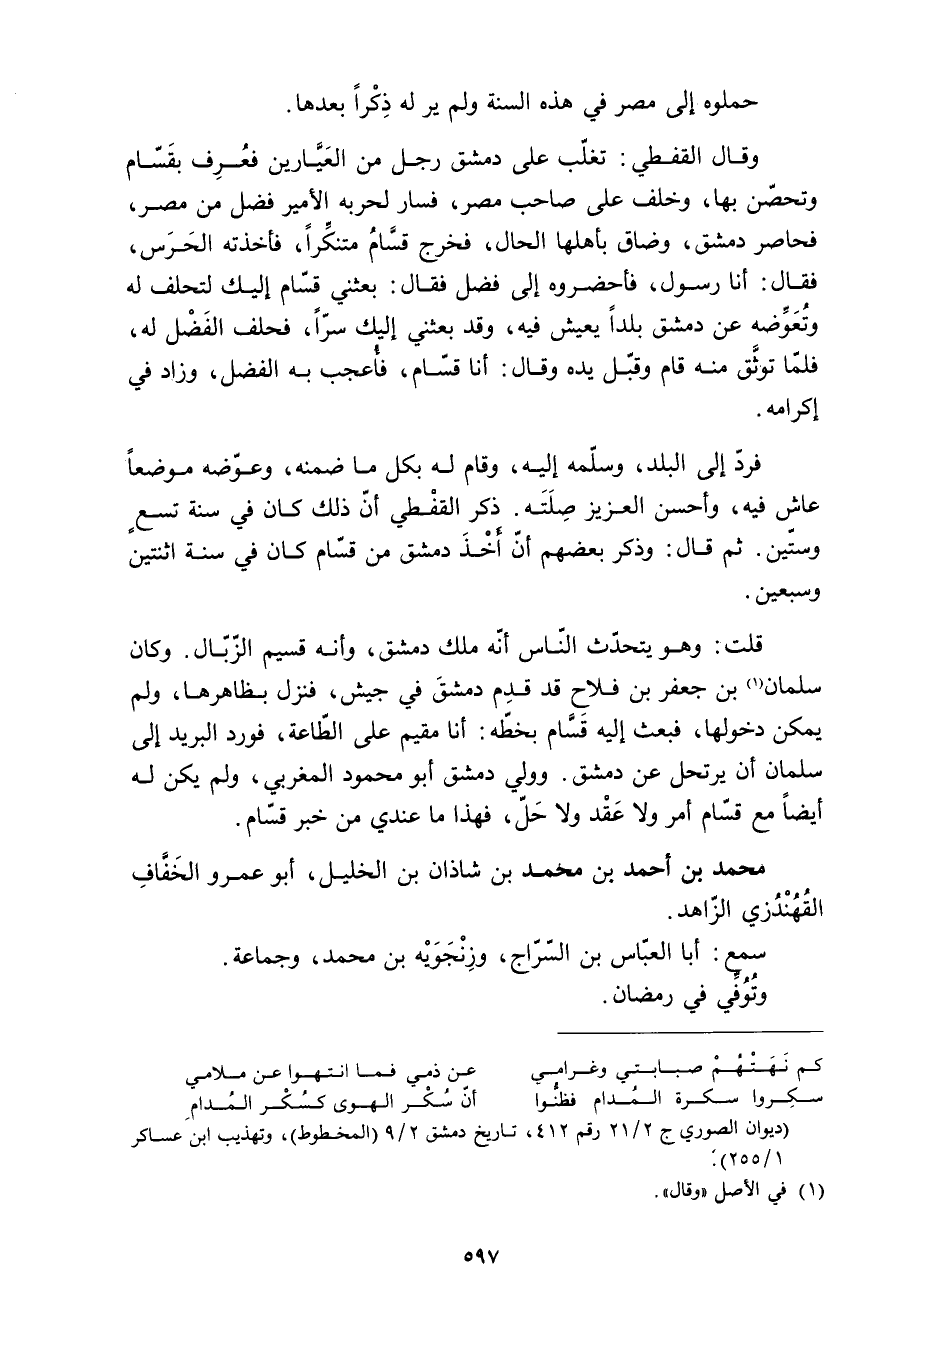 حملوه إلى مصر في هذه السنة ولم ير له ذِكْراً بعدها.
وقال القفطي: تغلّب على دمشق رجل من العَيَّارين فعُرِف بقَسّام
وتحصّن بها، وخلف على صاحب مصر، فسار لحربه الأمير فضل من مصر،
فحاصر دمشق، وضاق بأهلها الحال، فخرج قسَّامُ متنكِّراً، فأخذته الحَرَس،
فقال: أنا رسول، فأحضروه إلى فضل فقال: بعثني قسّام إليك لتحلف له
وتُعَوِّضه عن دمشق بلداً يعيش فيه، وقد بعثني إليك سرّاً، فحلف الفَضْل له،
فلمّا توثَّق منه قام وقبّل يده وقال: أنا قسّام، فأُعجب به الفضل، وزاد في
إكرامه.
فردّ إلى البلد، وسلّمه إليه، وقام له بكل ما ضمنه، وعوّضه موضعاً
عاش فيه، وأحسن العزيز صِلَتَه. ذكر القفْطي أنّ ذلك كان في سنة تسعٍ
وستّين. ثم قال: وذكر بعضهم أنّ أَخْذَ دمشق من قسّام كان في سنة اثنتين
وسبعين.
قلت: وهو يتحدّث النّاس أنّه ملك دمشق، وأنه قسيم الزّبّال. وكان
سلمان(١) بن جعفر بن فلاح قد قدِم دمشقَ في جيش، فنزل بظاهرها، ولم
يمكن دخولها، فبعث إليه قَسَّام بخطّه: أنا مقيم على الطّاعة، فورد البريد إلى
سلمان أن يرتحل عن دمشق. وولي دمشق أبو محمود المغربي، ولم يكن له
أيضاً مع قسّام أمر ولا عَقْد ولا حَلّ، فهذا ما عندي من خبر قسّام.
محمد بن أحمد بن محمد بن شاذان بن الخليل، أبو عمرو الخَفَّافِ
القُهُنْدُزي الزّاهد.
سمع: أبا العبّاس بن السّرّاج، وزِنْجَوَيْه بن محمد، وجماعة.
وتُوُفّي في رمضان.
كم نَهَتْهُمْ صبابتي وغرامي عن ذمي فما انتهوا عن ملامي
سكِروا سكرة المُدام فظنُّوا أنّ سُكْر الهوى كسُكْر المُدامِ
(ديوان الصوري ج ٢١/٢ رقم ٤١٢، تاريخ دمشق ٩/٢ (المخطوط)، وتهذيب ابن عساكر
٢٥٥/١).
(١) في الأصل «وقال».
٥٩٧